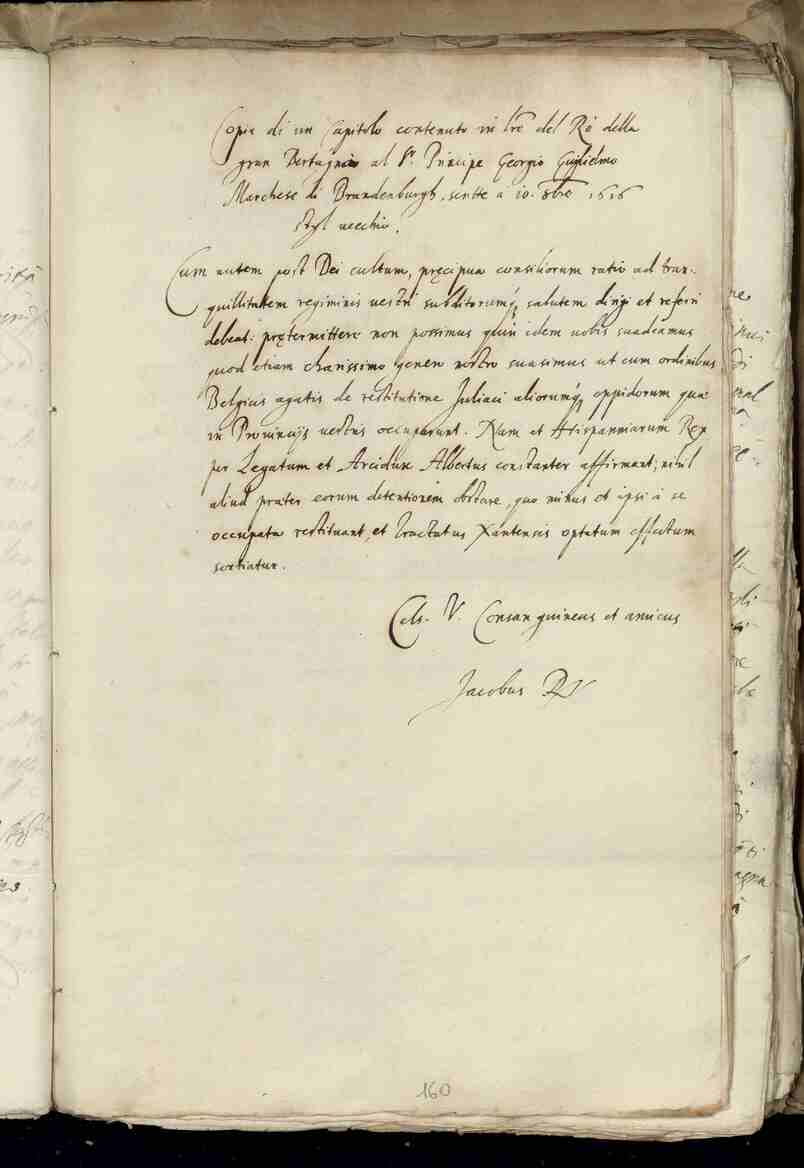 Copia di un Capitolo contenuto in lr̃e del Rè della
gran Bertagna al Sr. Principe Georgio Guglielmo
Marchese di Brandenburgh, scritte a 10. 8bre 1616
styl vecchio.
Cum autem post Dei cultum, pręcipua consiliorum ratio ad tran-
quillitatem regiminis vestri subditorumq; salutem dirigi et referri
debeat: prętermittere non possimus quin idem vobis suadeamus
quod etiam charissimo genero nostro suasimus ut cum ordinibus
Belgius agatis de restitutione Juliaci aliorumq; oppidorum quæ
in Provincijs vestris occuparunt. Nam et Hispanniarum Rex
per Legatum et Arcidux Albertus constanter affirmant; nihil
aliud præter eorum detentionem obstare, quo minus et ipsi à se
occupata restituant, et tractatus Xantensis optatum effectum
sortiatur.
Cels. V. Consanguineus et amicus
Jacobus R
160